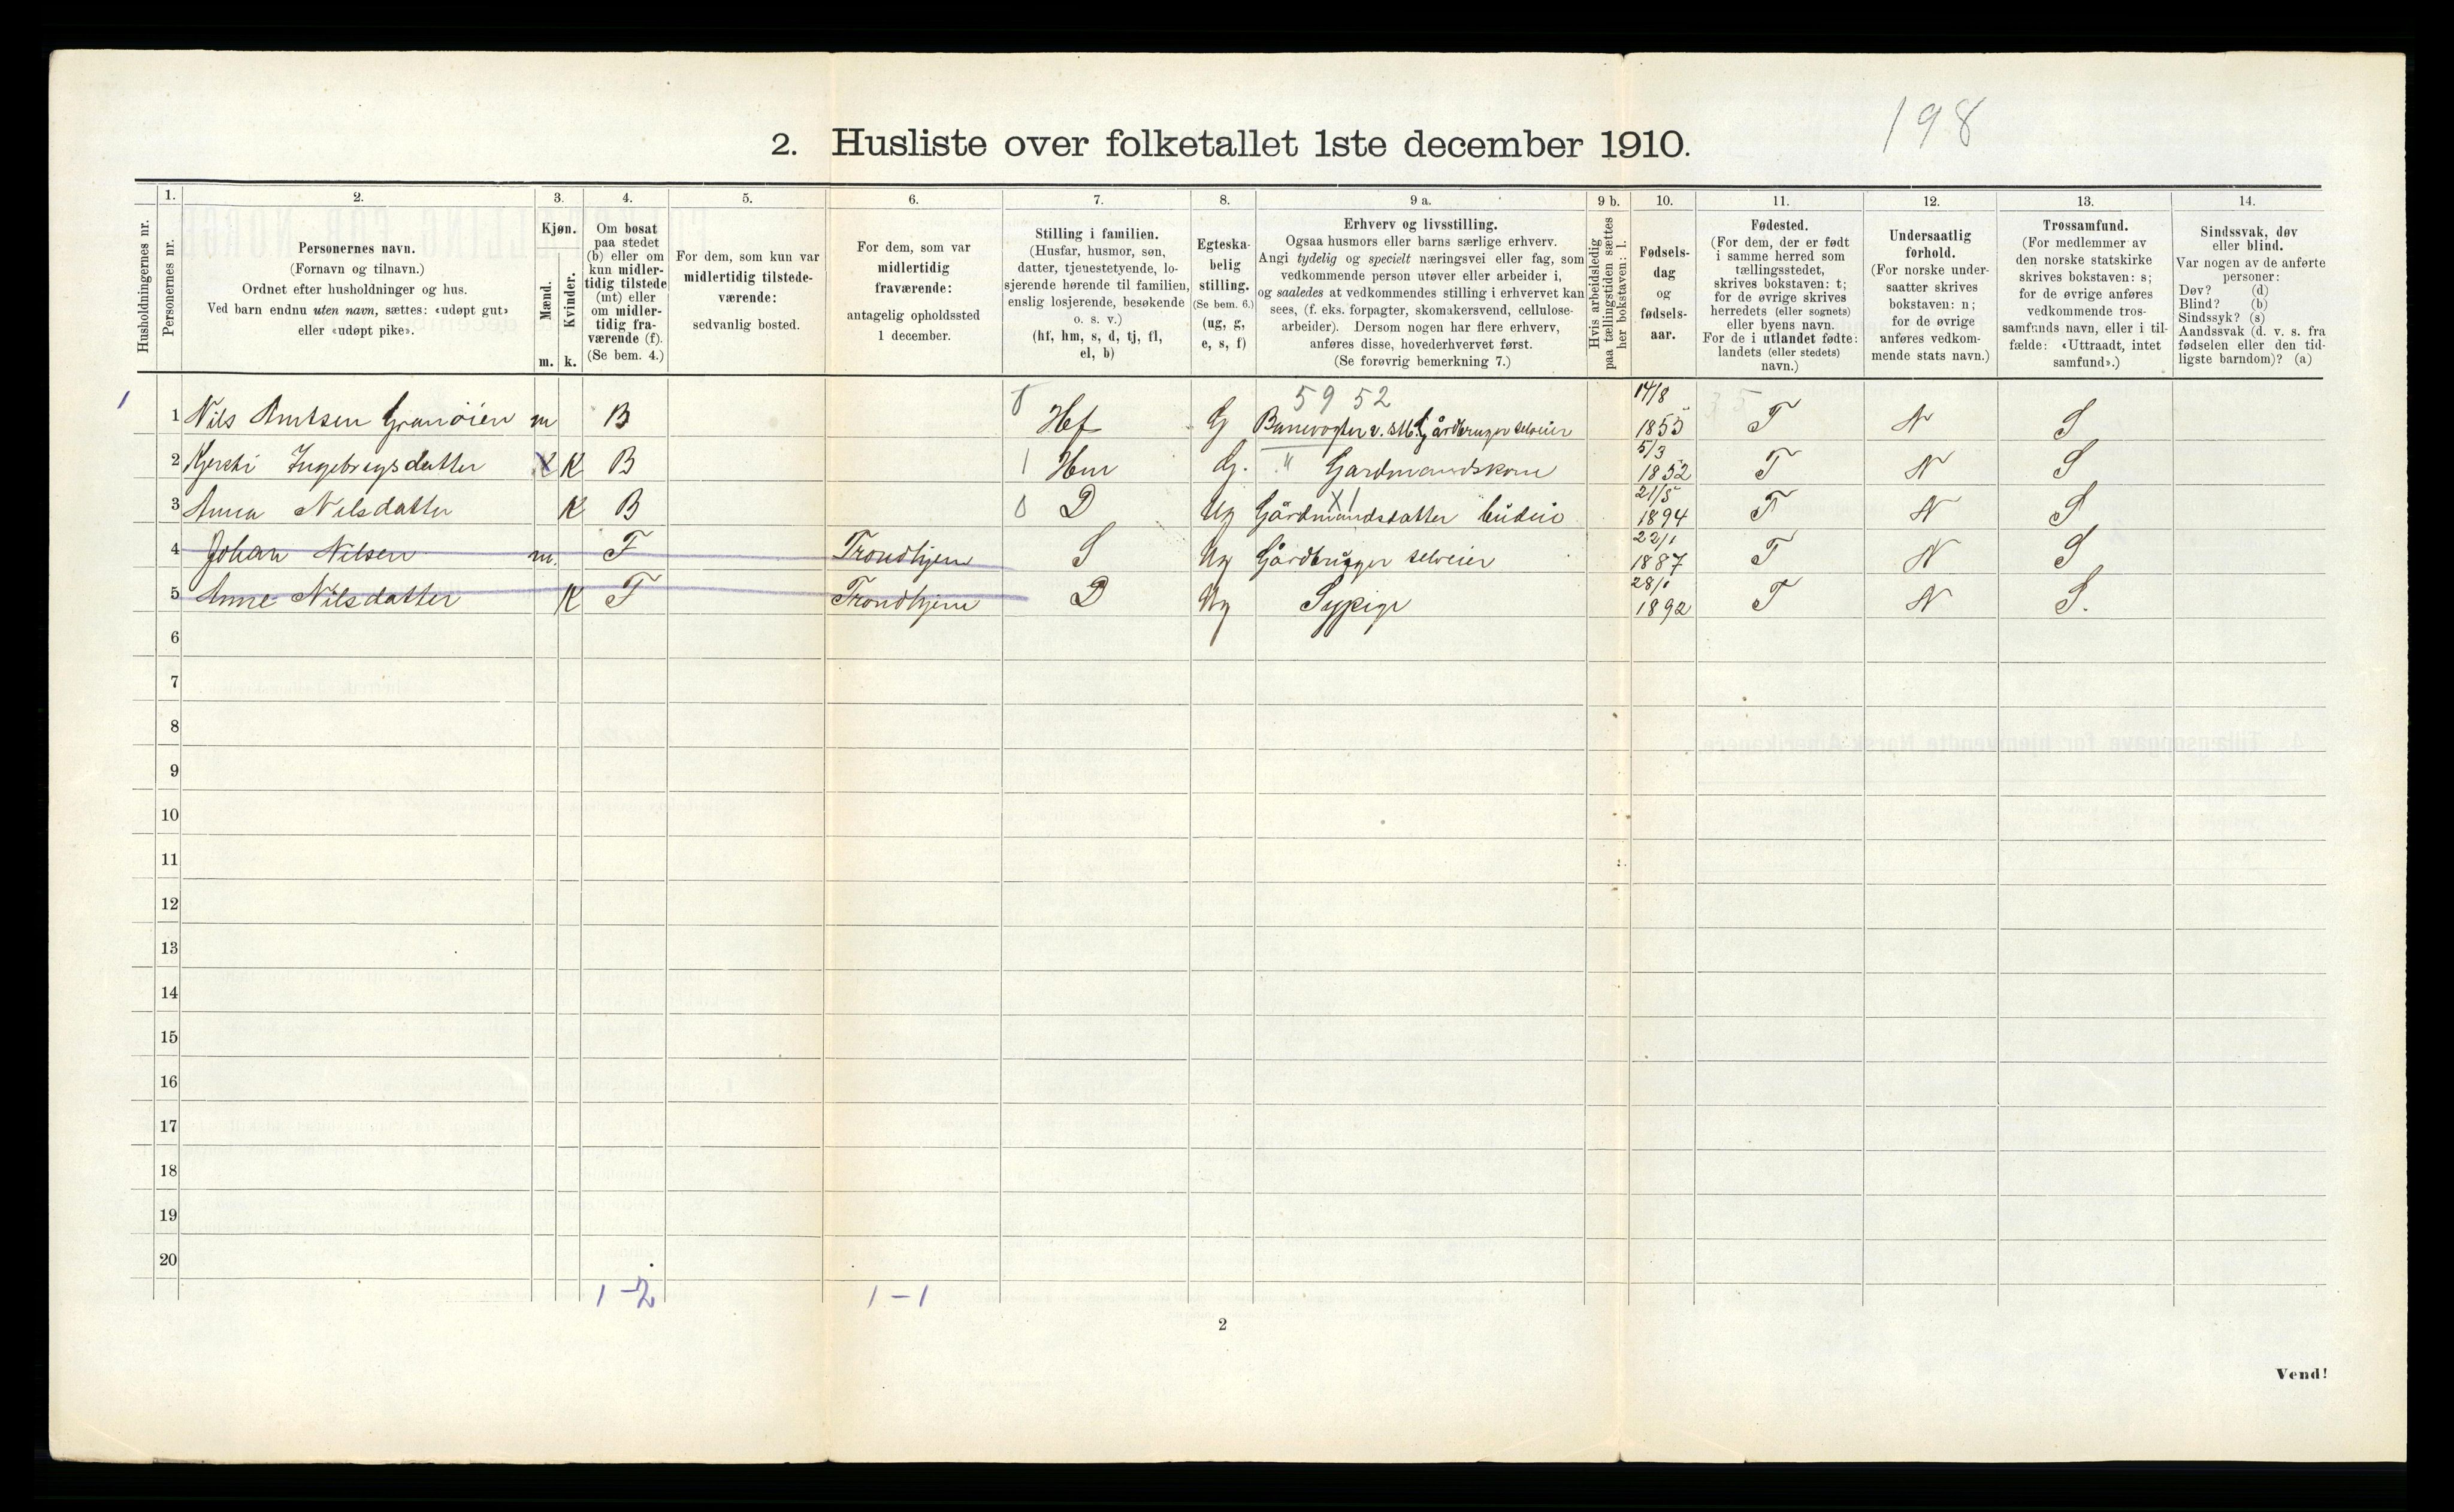 198
2. Husliste over folketallet 1ste december 1910.
Husholdningernes nr.
1.
Personernes nr.
2.
Personernes navn.
(Fornavn og tilnavn.)
Ordnet efter husholdninger og hus.
Ved barn endnu uten navn, sættes: «udøpt gut»
eller «udøpt pike».
3.
Kjøn.
Mænd.
m.
Kvinder.
k.
4.
Om bosat
paa stedet
(b) eller om
kun midler-
tidig tilstede
(mt) eller
om midler-
tidig fra-
værende (f).
(Se bem. 4.)
5.
For dem, som kun var
midlertidig tilstede-
værende:
sedvanlig bosted.
6.
For dem, som var
midlertidig
fraværende:
antagelig opholdssted
1 december.
7.
Stilling i familien.
(Husfar, husmor, søn,
datter, tjenestetyende, lo-
sjerende hørende til familien,
enslig losjerende, besøkende
o. s. v.)
(hf, hm, s, d, tj, fl,
el, b)
8.
Egteska-
belig
stilling.
(Se bem. 6.)
(ug, g,
e, s, f)
9 a.
Erhverv og livsstilling.
Ogsaa husmors eller barns særlige erhverv.
Angi tydelig og specielt næringsvei eller fag, som
vedkommende person utøver eller arbeider i,
og saaledes at vedkommendes stilling i erhvervet kan
sees, (f. eks. forpagter, skomakersvend, cellulose-
arbeider). Dersom nogen har flere erhverv,
anføres disse, hovederhvervet først.
(Se forøvrig bemerkning 7.)
9 b.
Hvis arbeidsledig
paa tællingstiden sættes
her bokstaven: l.
10.
Fødsels-
dag
og
fødsels-
aar.
11.
Fødested.
(For dem, der er født
i samme herred som
tællingsstedet,
skrives bokstaven: t;
for de øvrige skrives
herredets (eller sognets)
eller byens navn.
For de i utlandet fødte:
landets (eller stedets)
navn.)
12.
Undersaatlig
forhold.
(For norske under-
saatter skrives
bokstaven: n;
for de øvrige
anføres vedkom-
mende stats navn.)
13.
Trossamfund.
(For medlemmer av
den norske statskirke
skrives bokstaven: s;
for de øvrige anføres
vedkommende tros-
samfunds navn, eller i til-
fælde: «Uttraadt, intet
samfund».)
14.
Sindssvak, døv
eller blind.
Var nogen av de anførte
personer:
Døv? (d)
Blind? (b)
Sindssyk? (s)
Aandssvak (d. v. s. fra
fødselen eller den tid-
ligste barndom)? (a)
5952 14/8
1 1 Nils Arntsen Granøien m B 0 Hf G Banevogter v. Stb. Gårdbruger selveier 1855 T N S
5/3
2 Kjersti Ingebregsdatter K B 1 Hm G. " Gardmandskone 1852 T N S
21/5
3 Anna Nilsdatter K B 0 D Ug Gårdmandsdatter budeie 1894 T N S
22/1
4 Johan Nilsen m. F Trondhjem S Ug Gårdbruger selveier 1887 T N S
28/1
5 Anne Nilsdatter K F Trondhjem D Ug Sypige 1892 T N S.
6
7
8
9
10
11
12
13
14
15
16
17
18
19
20
1-2 1-1
2
Vend!